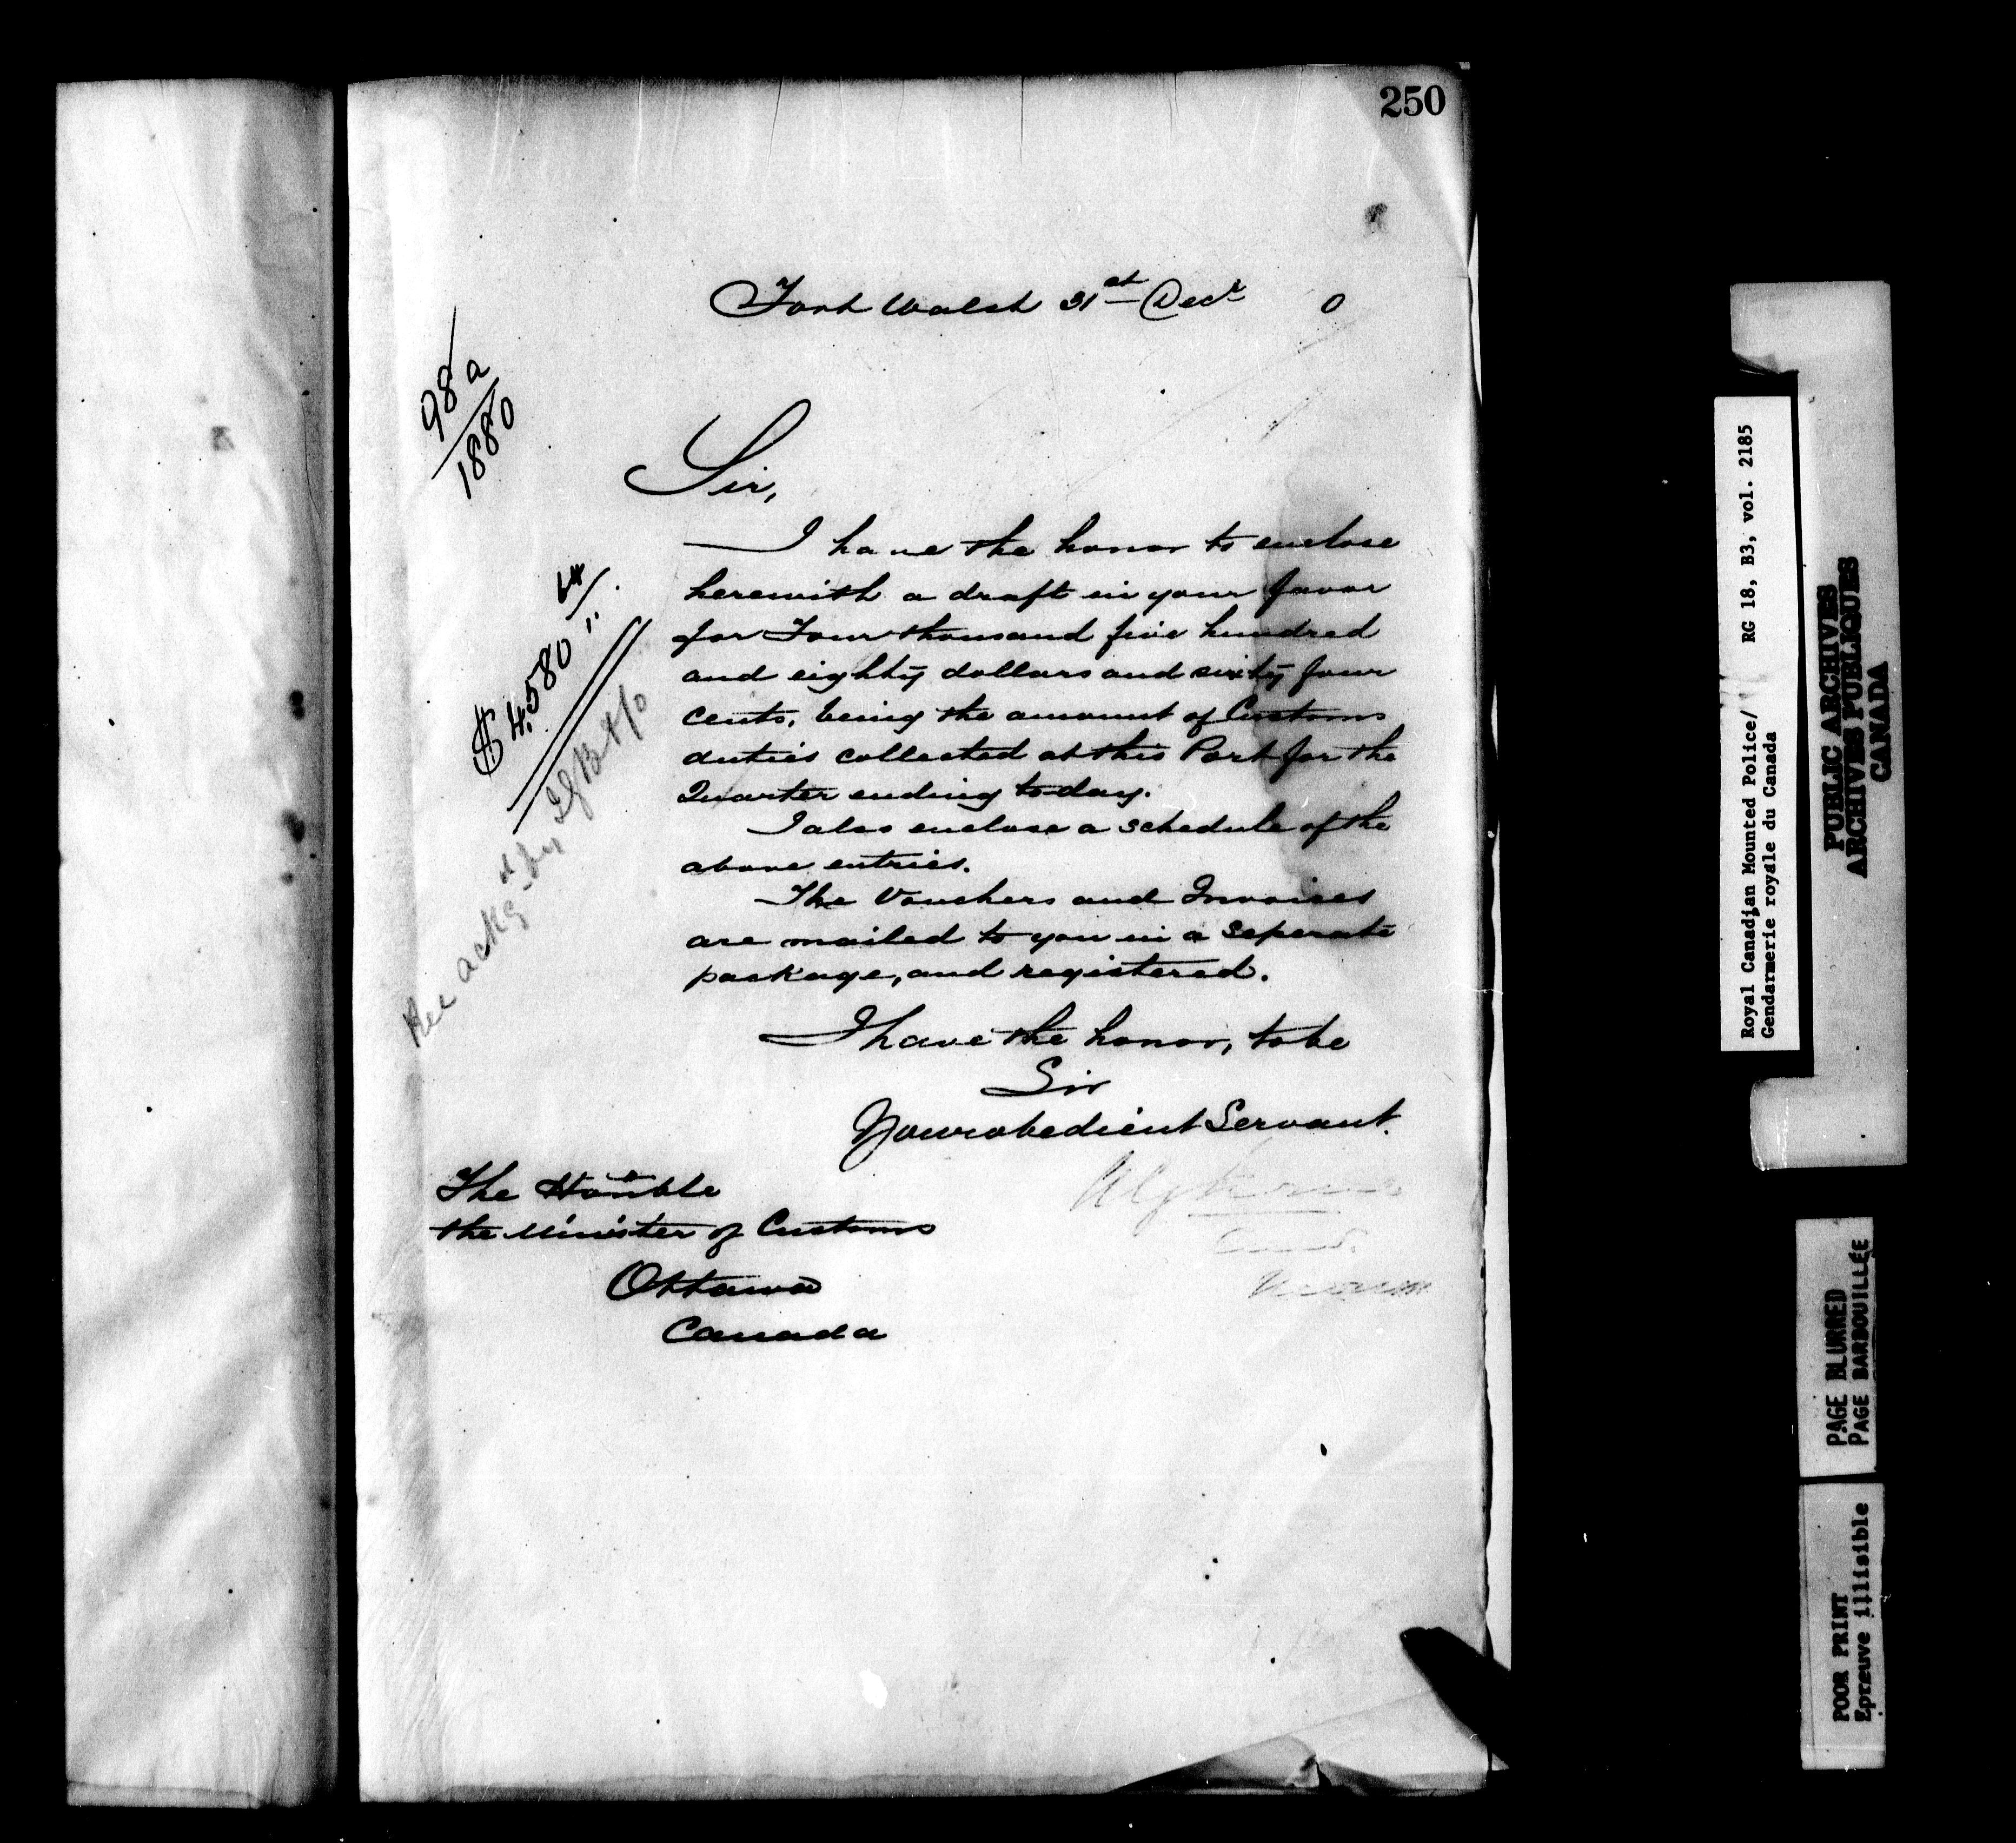 250
Fort Walsh 31st Decr 0
98a
1880
Sir,
I have the honor to enclose
herewith a draft in your favor
for Four thousand five hundred
and eighty dollars and sixty four
cents, being the amount of Customs
duties collected at this Port for the
Quarter ending to day.
$4,580 64
I also enclose a schedule of the
above entries.
The Vouchers and Invoices
are mailed to you in a seperate
package, and registered.
I have the honor, to be
Sir
Your obedient Servant.
The Honble
the Minister of Customs
Ottawa
Canada
Royal Canadian Mounted Police/ RG 18, B3, vol. 2185
Gendarmerie royale du Canada
PUBLIC ARCHIVES
ARCHIVES PUBLIQUES
CANADA
PAGE BLURRED
PAGE BARBOUILLÉE
POOR PRINT
Epreuve illisible